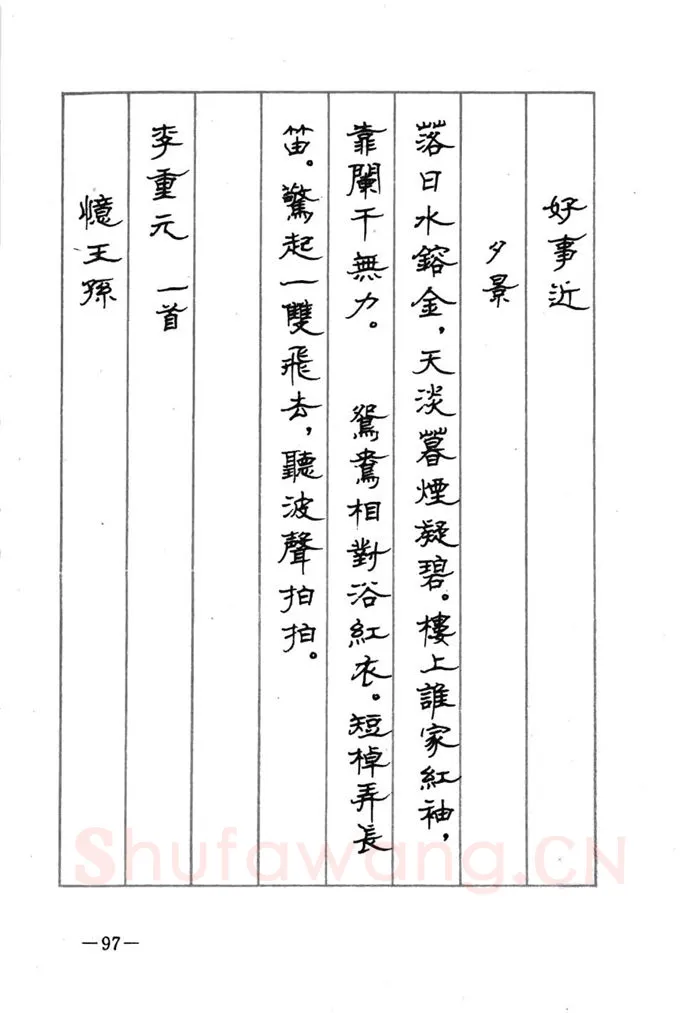 好事近
夕景
落日水鎔金，天淡暮煙凝碧。樓上誰家紅袖，
靠闌干無力。　鴛鴦相對浴紅衣。短棹弄長
笛。驚起一雙飛去，聽波聲拍拍。
李重元　一首
憶王孫
—97—
Shufawang.CN